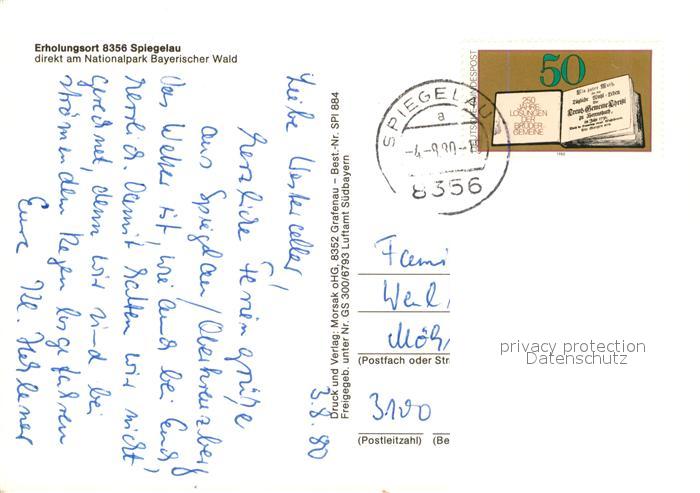 Erholungsort 8356 Spiegelau
direkt am Nationalpark Bayerischer Wald
3.8.80
Liebe Westerceller!
Herzliche Feriengrüße
aus Spiegelau/Oberkreuzberg
Das Wetter ist, wie auch bei Euch,
herrlich. Damit hatten wir nicht
gerechnet, denn wir sind bei
strömendem Regen losgefahren
Eure
Druck und Verlag: Morsak oHG, 8352 Grafenau – Best.-Nr. SPI 884
Freigegeb. unter Nr. GS 300/6793 Luftamt Südbayern
SPIEGELAU
a
8356
DEUTSCHE BUNDESPOST
50
250
JAHRE
LOSUNGEN
DER
BRÜDER-
GEMEINE
1980
Fami
(Postfach oder Str
3100
(Postleitzahl) (Be
privacy protection
Datenschutz